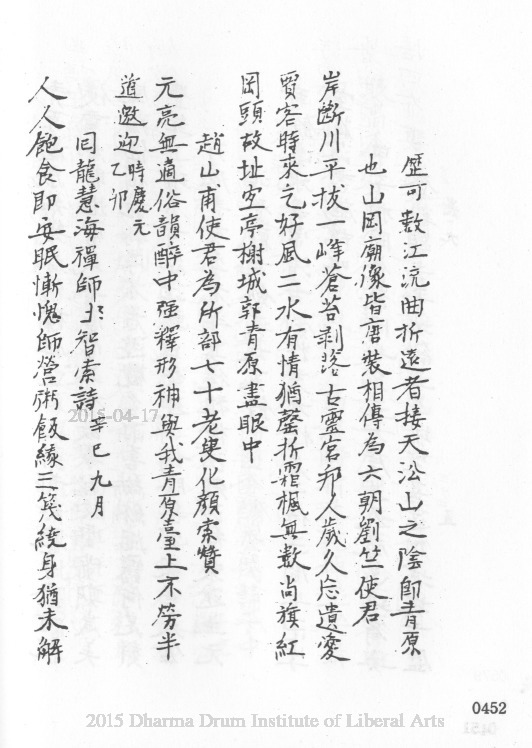 歷可數江流曲折遠者接天沿山之陰即青原
也山岡廟像皆唐裝相傳為六朝劉竺使君
岸斷川平拔一峰蒼苔剥落古靈宮邦人歲久忘遺愛
賈客時來乞好風二水有情猶罄折霜楓無數尚旗紅
岡頭故址空亭榭城郭青原盡眼中
趙山甫使君為所部七十老叟化顏索贊
元亮無適俗韻醉中强釋形神與我青原臺上不勞半
道邀迎時慶元乙卯
囘龍慧海禪師上智索詩辛巳九月
人人飽食即安眠慚愧師營粥飯緣三篾繞身猶未解
2015-04-17
0452
2015 Dharma Drum Institute of Liberal Arts